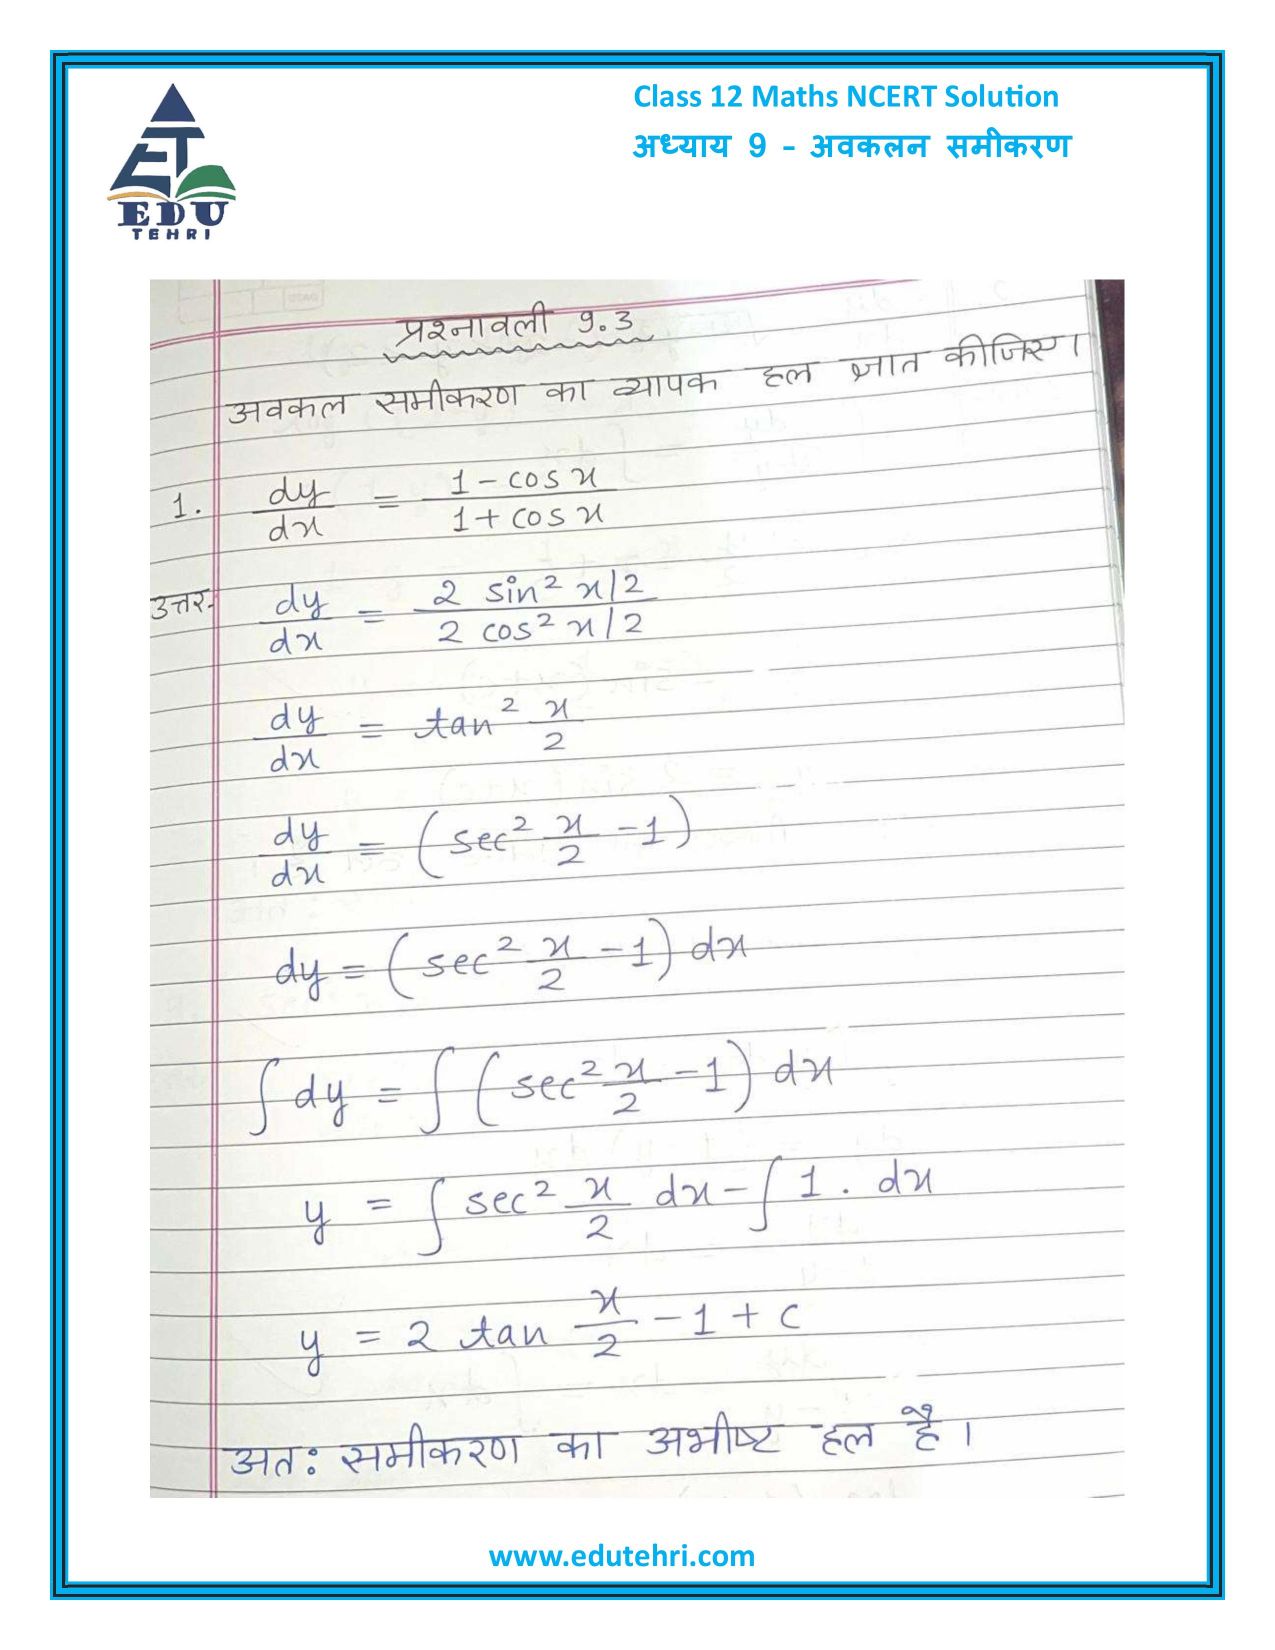 Class 12 Maths NCERT Solution
अध्याय 9 - अवकलन समीकरण
EDU
TEHRI
प्रश्नावली 9.3
अवकल समीकरण का व्यापक हल ज्ञात कीजिए।
1. dy/dx = (1 - cos x)/(1 + cos x)
उत्तर- dy/dx = (2 sin² x/2)/(2 cos² x/2)
dy/dx = tan² x/2
dy/dx = (sec² x/2 - 1)
dy = (sec² x/2 - 1) dx
∫ dy = ∫ (sec² x/2 - 1) dx
y = ∫ sec² x/2 dx - ∫ 1. dx
y = 2 tan x/2 - 1 + c
अतः समीकरण का अभीष्ट हल है।
www.edutehri.com